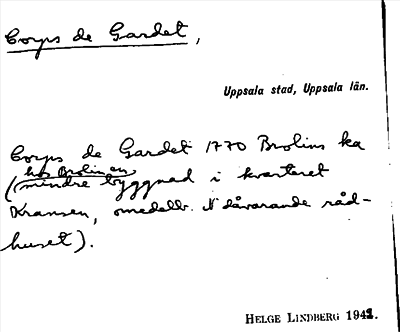 Corps de Gardet,
Uppsala stad, Uppsala län.
Corps de Gardet 1770 Brolins ka
hos Brolin en
(mindre byggnad i kvarteret
Kransen, omedelb. N dåvarande råd-
huset).
HELGE LINDBERG 1941.